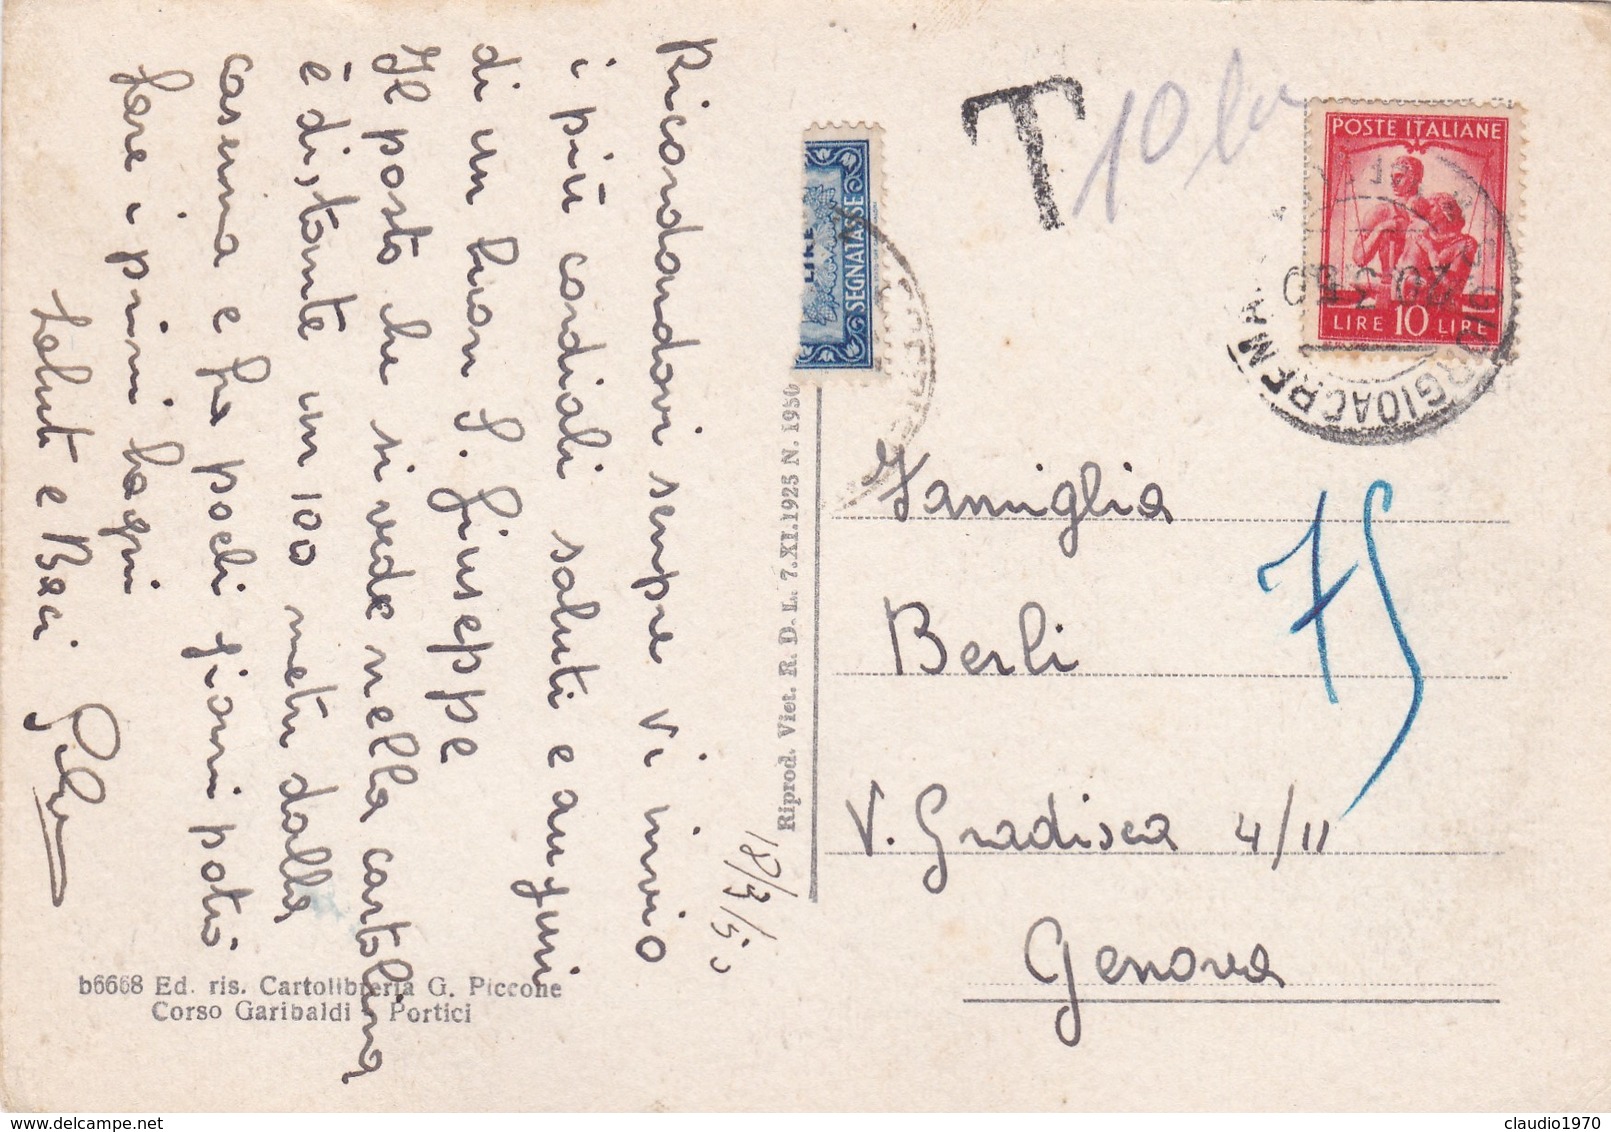 18/3/50
Ricordandovi sempre vi invio
i più cordiali saluti e auguri
di un buon S. Giuseppe
Il posto che si vede nella cartolina
è distante un 100 metri dalla
caserma e fra pochi giorni potrò
fare i primi bagni
Saluti e Baci
b6668 Ed. ris. Cartolibreria G. Piccone
Corso Garibaldi - Portici
Riprod. Viet. R. D. L. 7.XI.1925 N. 1950
LIRE
SEGNATASSE
T
10
POSTE ITALIANE
LIRE 10 LIRE
GIORGIO A CREMA
20.3.50
Famiglia
Berli
V. Gradisca 4/11
Genova
claudio1970